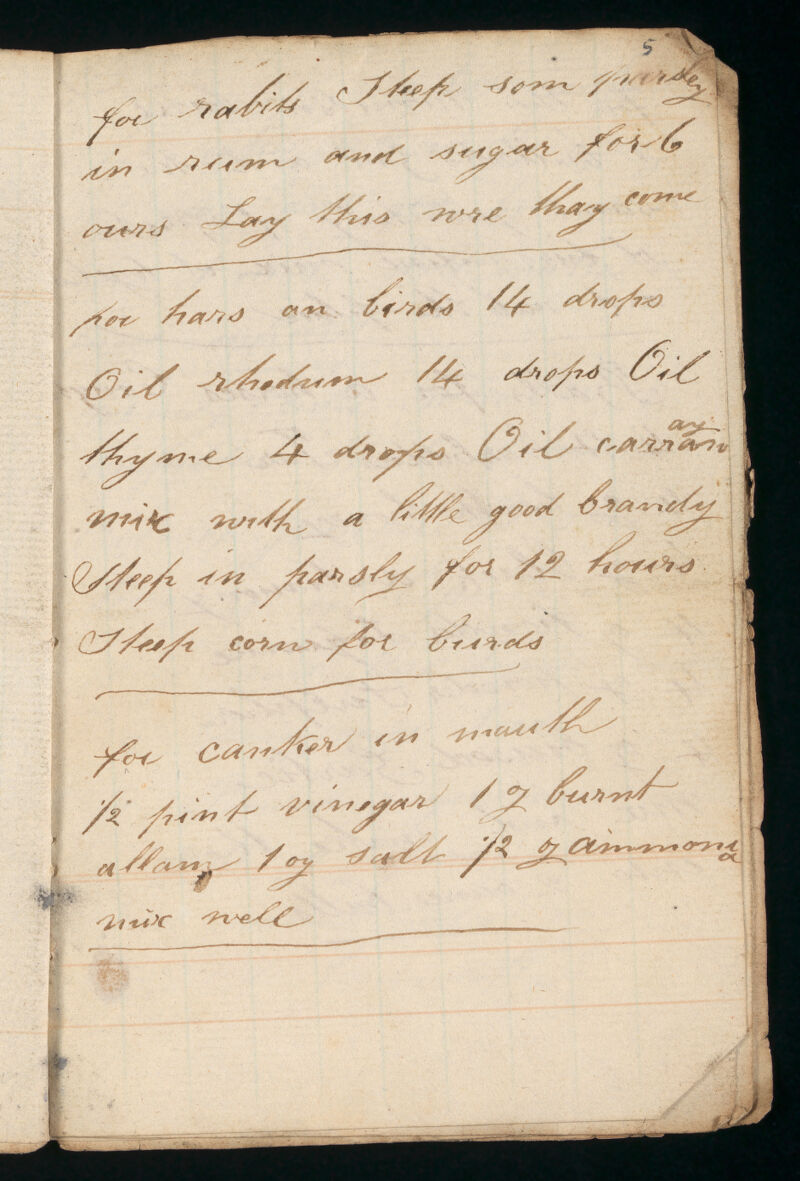 5
for rabits Steep som parsley
in rum and sugar for 6
ours Lay this wre thay come
for hars an birds 14 drops
Oil rhodum 14 drops Oil
thyme 4 drops Oil carraway
mix with a little good brandy
Steep in parsly for 12 hours
Steep corn for burds
for canker in mauth
1/2 pint vinegar 1 oz burnt
allam 1 oz salt 1/2 oz ammona
mix well